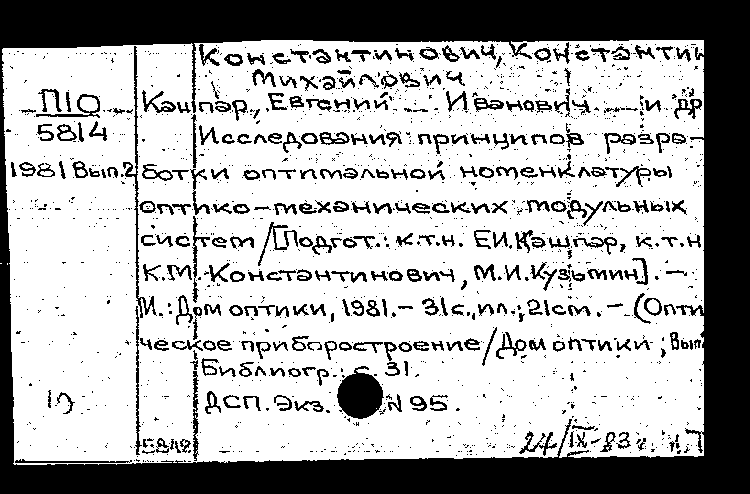 Константинович, Константин
Михайлович
П10 Кашпар, Евгений Иванович и др
5814 Исследования принципов разра-
1981 Вып.2 ботки оптимальной номенклатуры
оптико-механических модульных
систем /[Подгот.: к.т.н. Е.И.Кашпар, к.т.н
К.М. Константинович, М.И.Кузьмин]. —
М.: Дом оптики, 1981. - 31с., ил.; 21см. - (Опти
ческое приборостроение/Дом оптики; Вып
Библиогр.: с. 31.
ДСП. Экз. N 95.
5848
24/IX-83 г.